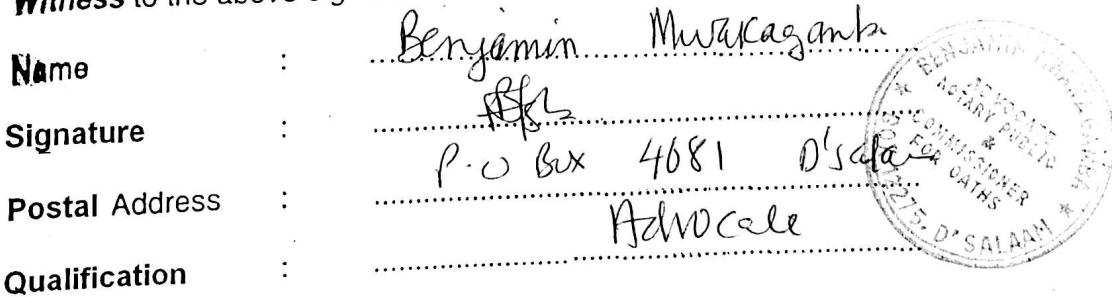 Witness to the above
Name : Benjamin Mwakagamba
Signature :
Postal Address : P.O Box 4681 D'salaam
Qualification : Advocate
BENJAMIN MWAKAGAMBA
ADVOCATE
NOTARY PUBLIC
&
COMMISSIONER
FOR OATHS
D'SALAAM